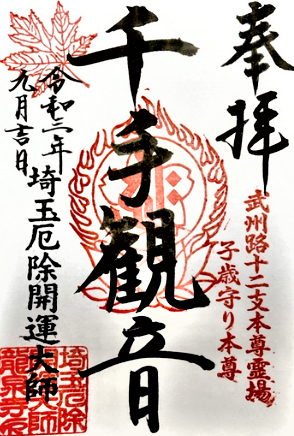 奉拝
武州路十二支本尊霊場
子歳守り本尊
千手観音
令和三年
九月吉日
埼玉厄除開運大師
埼玉厄除
開運大師
龍泉寺印